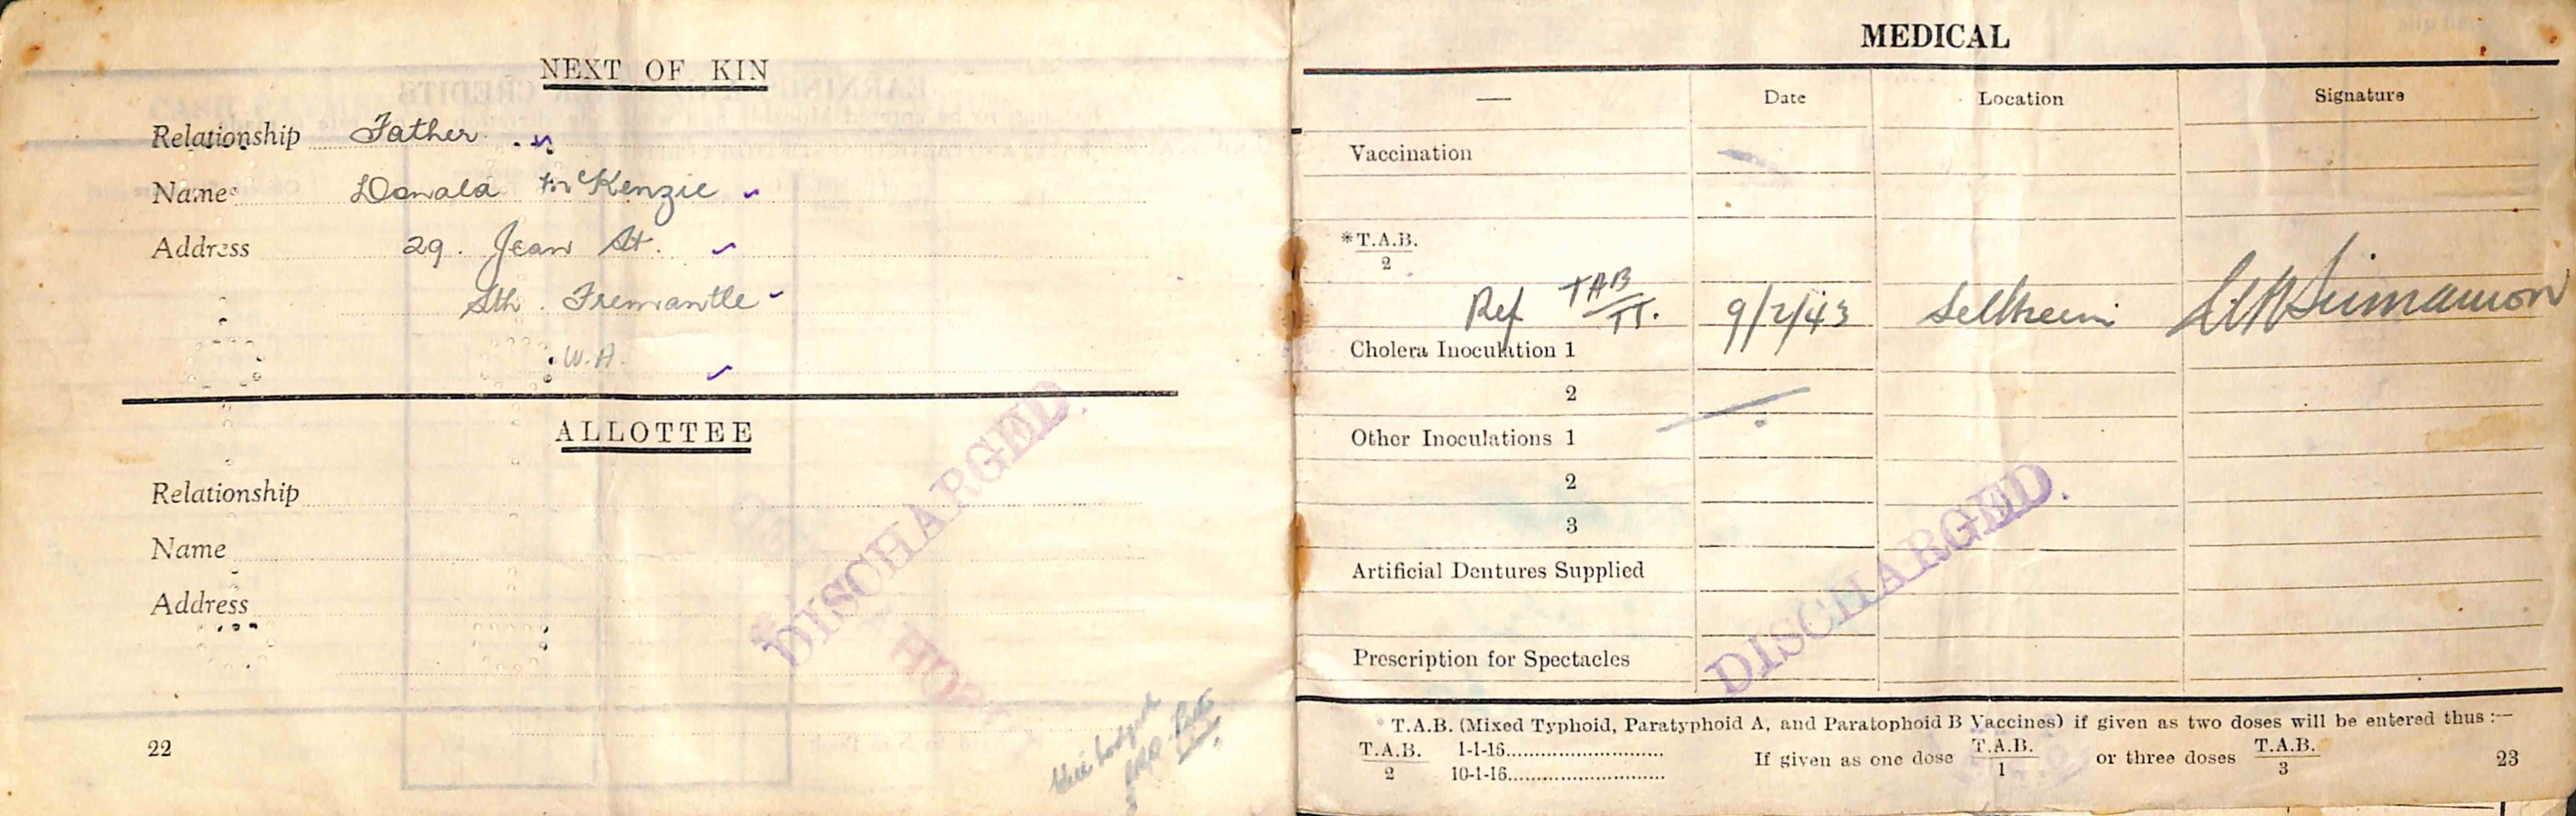 NEXT OF KIN
Relationship Father
Name Donald McKenzie
Address 29. Jean St.
Sth. Fremantle
W.A.
ALLOTTEE
Relationship
Name
Address
DISCHARGED.
22
MEDICAL
— Date Location Signature
Vaccination
*T.A.B.
2
Ref TAB 9/2/43 Sellheim
TT.
Cholera Inoculation 1
2
Other Inoculations 1
2
3
Artificial Dentures Supplied
Prescription for Spectacles
DISCHARGED.
* T.A.B. (Mixed Typhoid, Paratyphoid A, and Paratophoid B Vaccines) if given as two doses will be entered thus :—
T.A.B. 1-1-16
2 10-1-16
If given as one dose T.A.B. or three doses T.A.B.
1 3
23